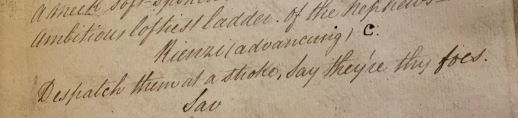 a meek soft-spoken
ambitious loftiest ladder. of the Nephews
Rienzi (advancing) C.
Despatch them at a stroke, say they're thy foes.
Sav